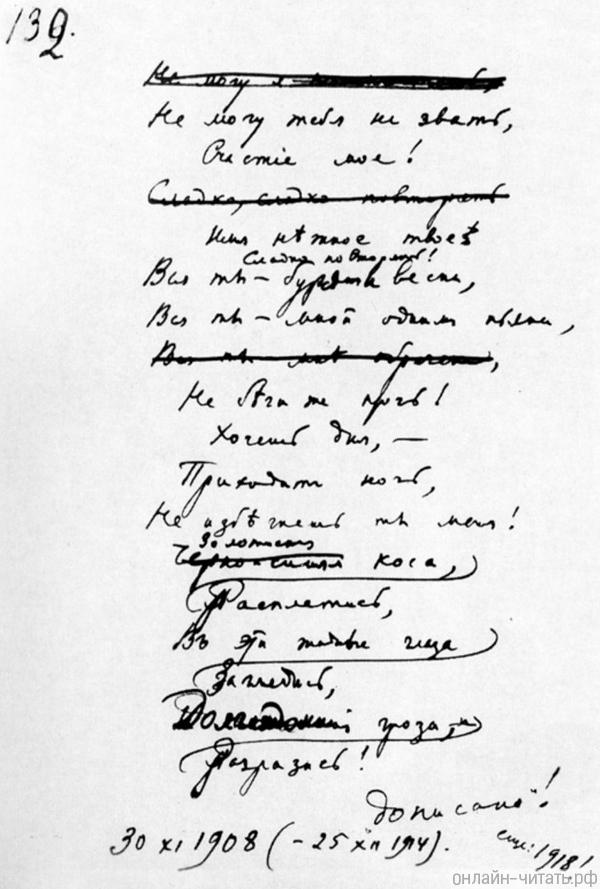 132.
Не могу я
Не могу тебя не звать,
Счастіе мое!
Сладко, сладко повторять
Имя нѣжное твое
Сладко повторять!
Вся ты — бурей весны,
Вся ты — мной однимъ пьяна,
Вся ты мнѣ
Не бѣги же прочь!
Хочешь дня, —
Приходитъ ночь,
Не избѣгнешь ты меня!
Золотистая
Черносиняя коса,
Расплетись,
Въ эти жадные глаза
Заглядись,
гроза,
Разразись!
дописано!
30 XI 1908 ( - 25 XII 1914).
еще: 1918!
онлайн-читать.рф